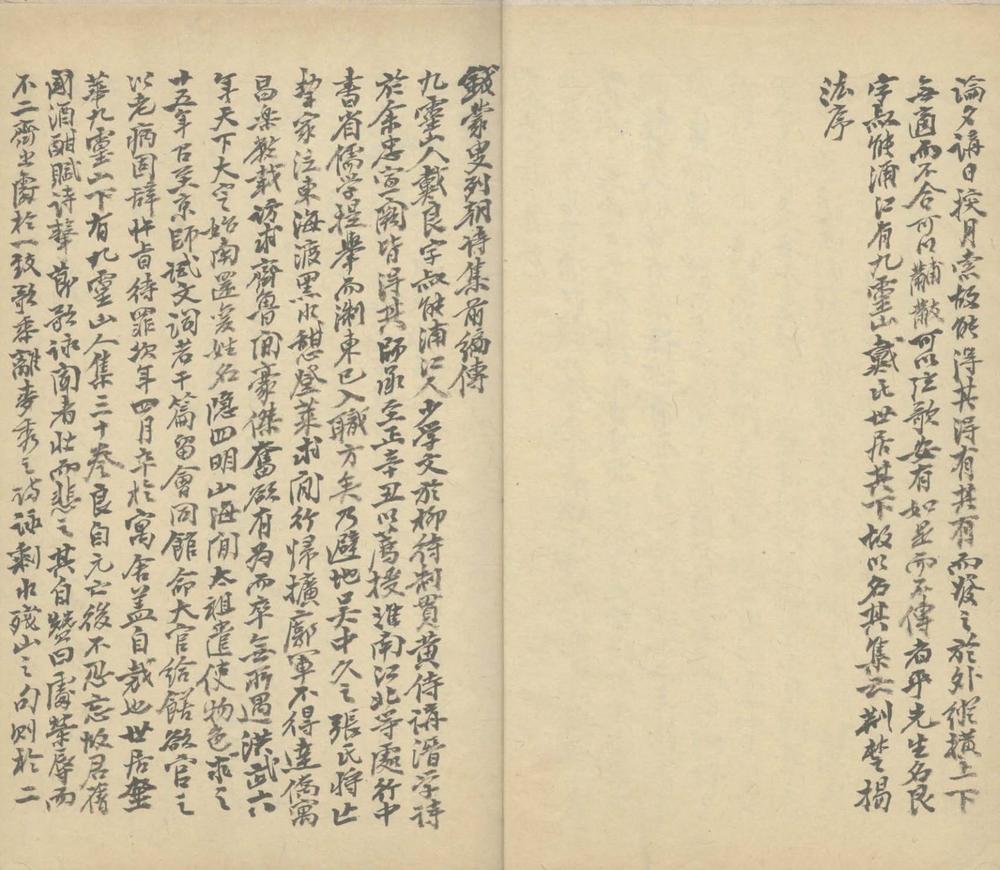 論夕講日採月索故能得其得有其有而發之於外縱橫上下
無適而不合可以黼黻可以弦歌安有如是而不傳者乎先生名良
字叔能浦江有九靈山戴氏世居其下故以名其集云荆楚揭
法序
錢蒙叟列朝詩集前編傳
九靈山人戴良字叔能浦江人少學文於柳待制貫黃侍講潛學詩
於余忠宣闕皆得其師承至正辛丑以薦授淮南江北等處行中
書省儒學提舉而浙東已入職方矣乃避地吳中久之張氏將亡
挈家泛東海渡黑水憇登萊求間行歸擴廓軍不得達僑寓
昌樂數載訪求齊魯間豪傑奮欲有為而卒無所遇洪武六
年天下大定始南還變姓名隱四明山海間太祖遣使物色求之
十五年召至京師試文詞若干篇留會同館命大官給饍欲官之
以老病固辭忤旨待罪次年四月卒於寓舍蓋自裁也世居金
華九靈山下有九靈山人集三十卷良自元亡後不忍忘故君舊
國酒酣賦詩擊節歌詠聞者壯而悲之其自贊曰處榮辱而
不二齊出處於一致歌黍離麥秀之詩詠剩水殘山之句則於二